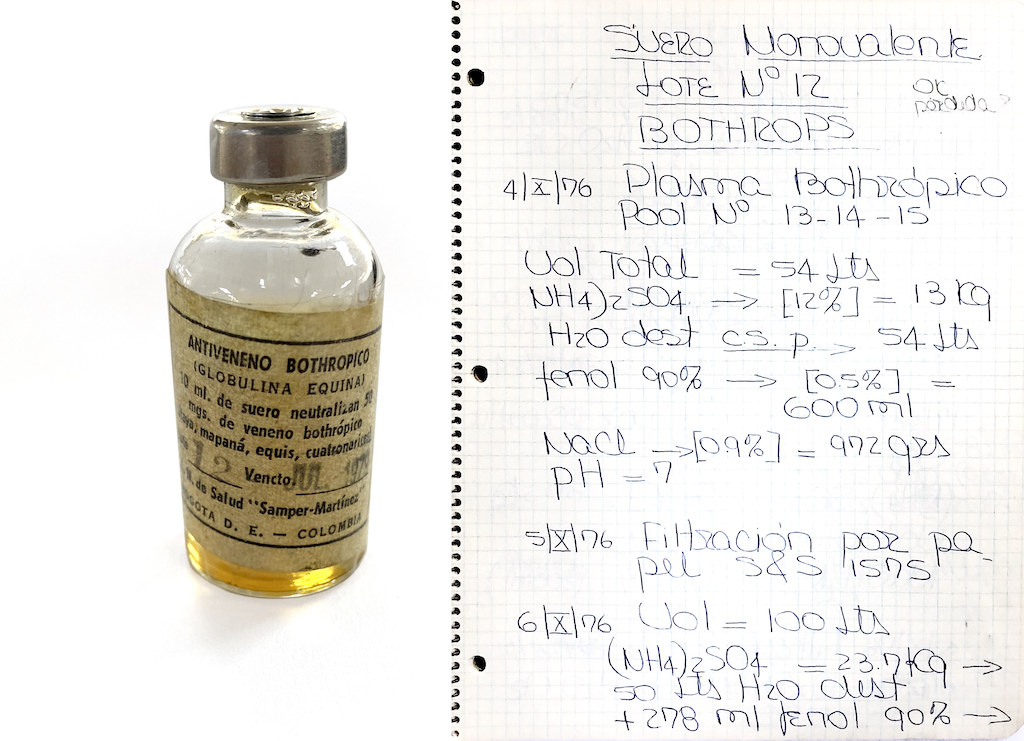 ANTIVENENO BOTHROPICO
(GLOBULINA EQUINA)
10 ml. de suero neutralizan 50
mgs. de veneno bothrópico
mapaná, equis, cuatronarices
12 Vencto. JUL
N. de Salud "Samper-Martínez"
BOGOTA D. E. — COLOMBIA
SUERO Monovalente
LOTE Nº 12
OK
perdida?
BOTHROPS
4/X/76 Plasma Bothrópico
Pool Nº 13-14-15
Vol Total = 54 Lts
NH4)2SO4 → [12%] = 13 Kg
H2O dest c.s.p. → 54 Lts
fenol 90% → [0.5%] =
600 ml
NaCl → [0.9%] = 972 grs
pH = 7
5/X/76 Filtración por pa-
pel S&S 1575
6/X/76 Vol = 100 Lts
(NH4)2SO4 = 23.7 Kg →
50 Lts H2O dest
+278 ml fenol 90% →